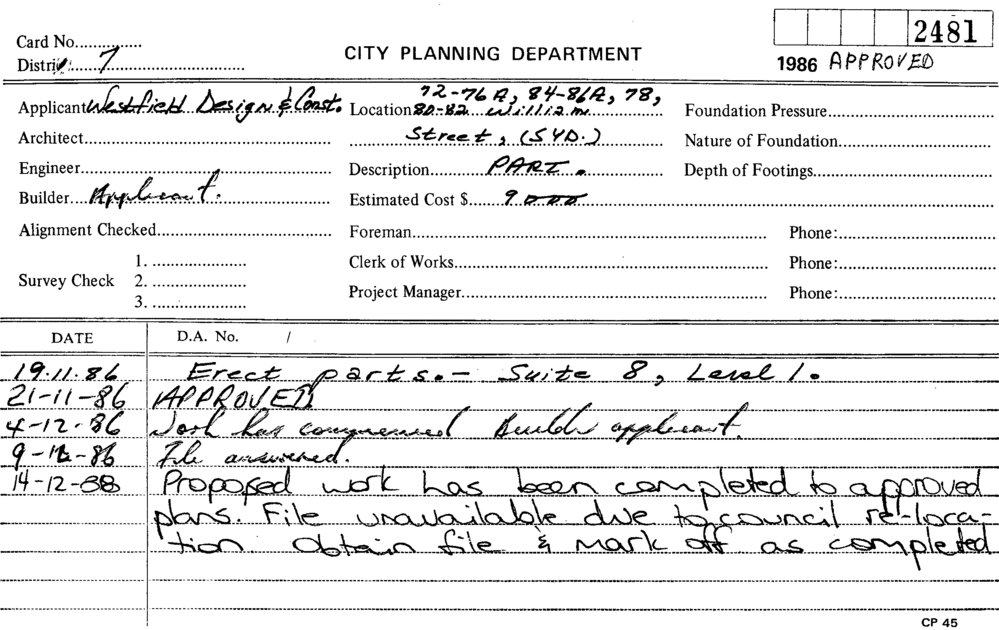 2481
Card No.
CITY PLANNING DEPARTMENT
1986 APPROVED
District 7
72-76A, 84-86A, 78,
Applicant Westfield Design & Const. Location 80-82 William Foundation Pressure
Architect Street, (SYD.) Nature of Foundation
Engineer Description PART. Depth of Footings
Builder Applicant. Estimated Cost $ 9000
Alignment Checked Foreman Phone:
1. Clerk of Works Phone:
Survey Check 2.
3. Project Manager Phone:
DATE D.A. No. /
19.11.86 Erect parts. - Suite 8, Level 1.
21-11-86 APPROVED
4-12-86 Work has commenced Builder applicant.
9-12-86 File answered.
14-12-88 Proposed work has been completed to approved
plans. File unavailable due to council re-loca-
tion. Obtain file & mark off as completed
CP 45